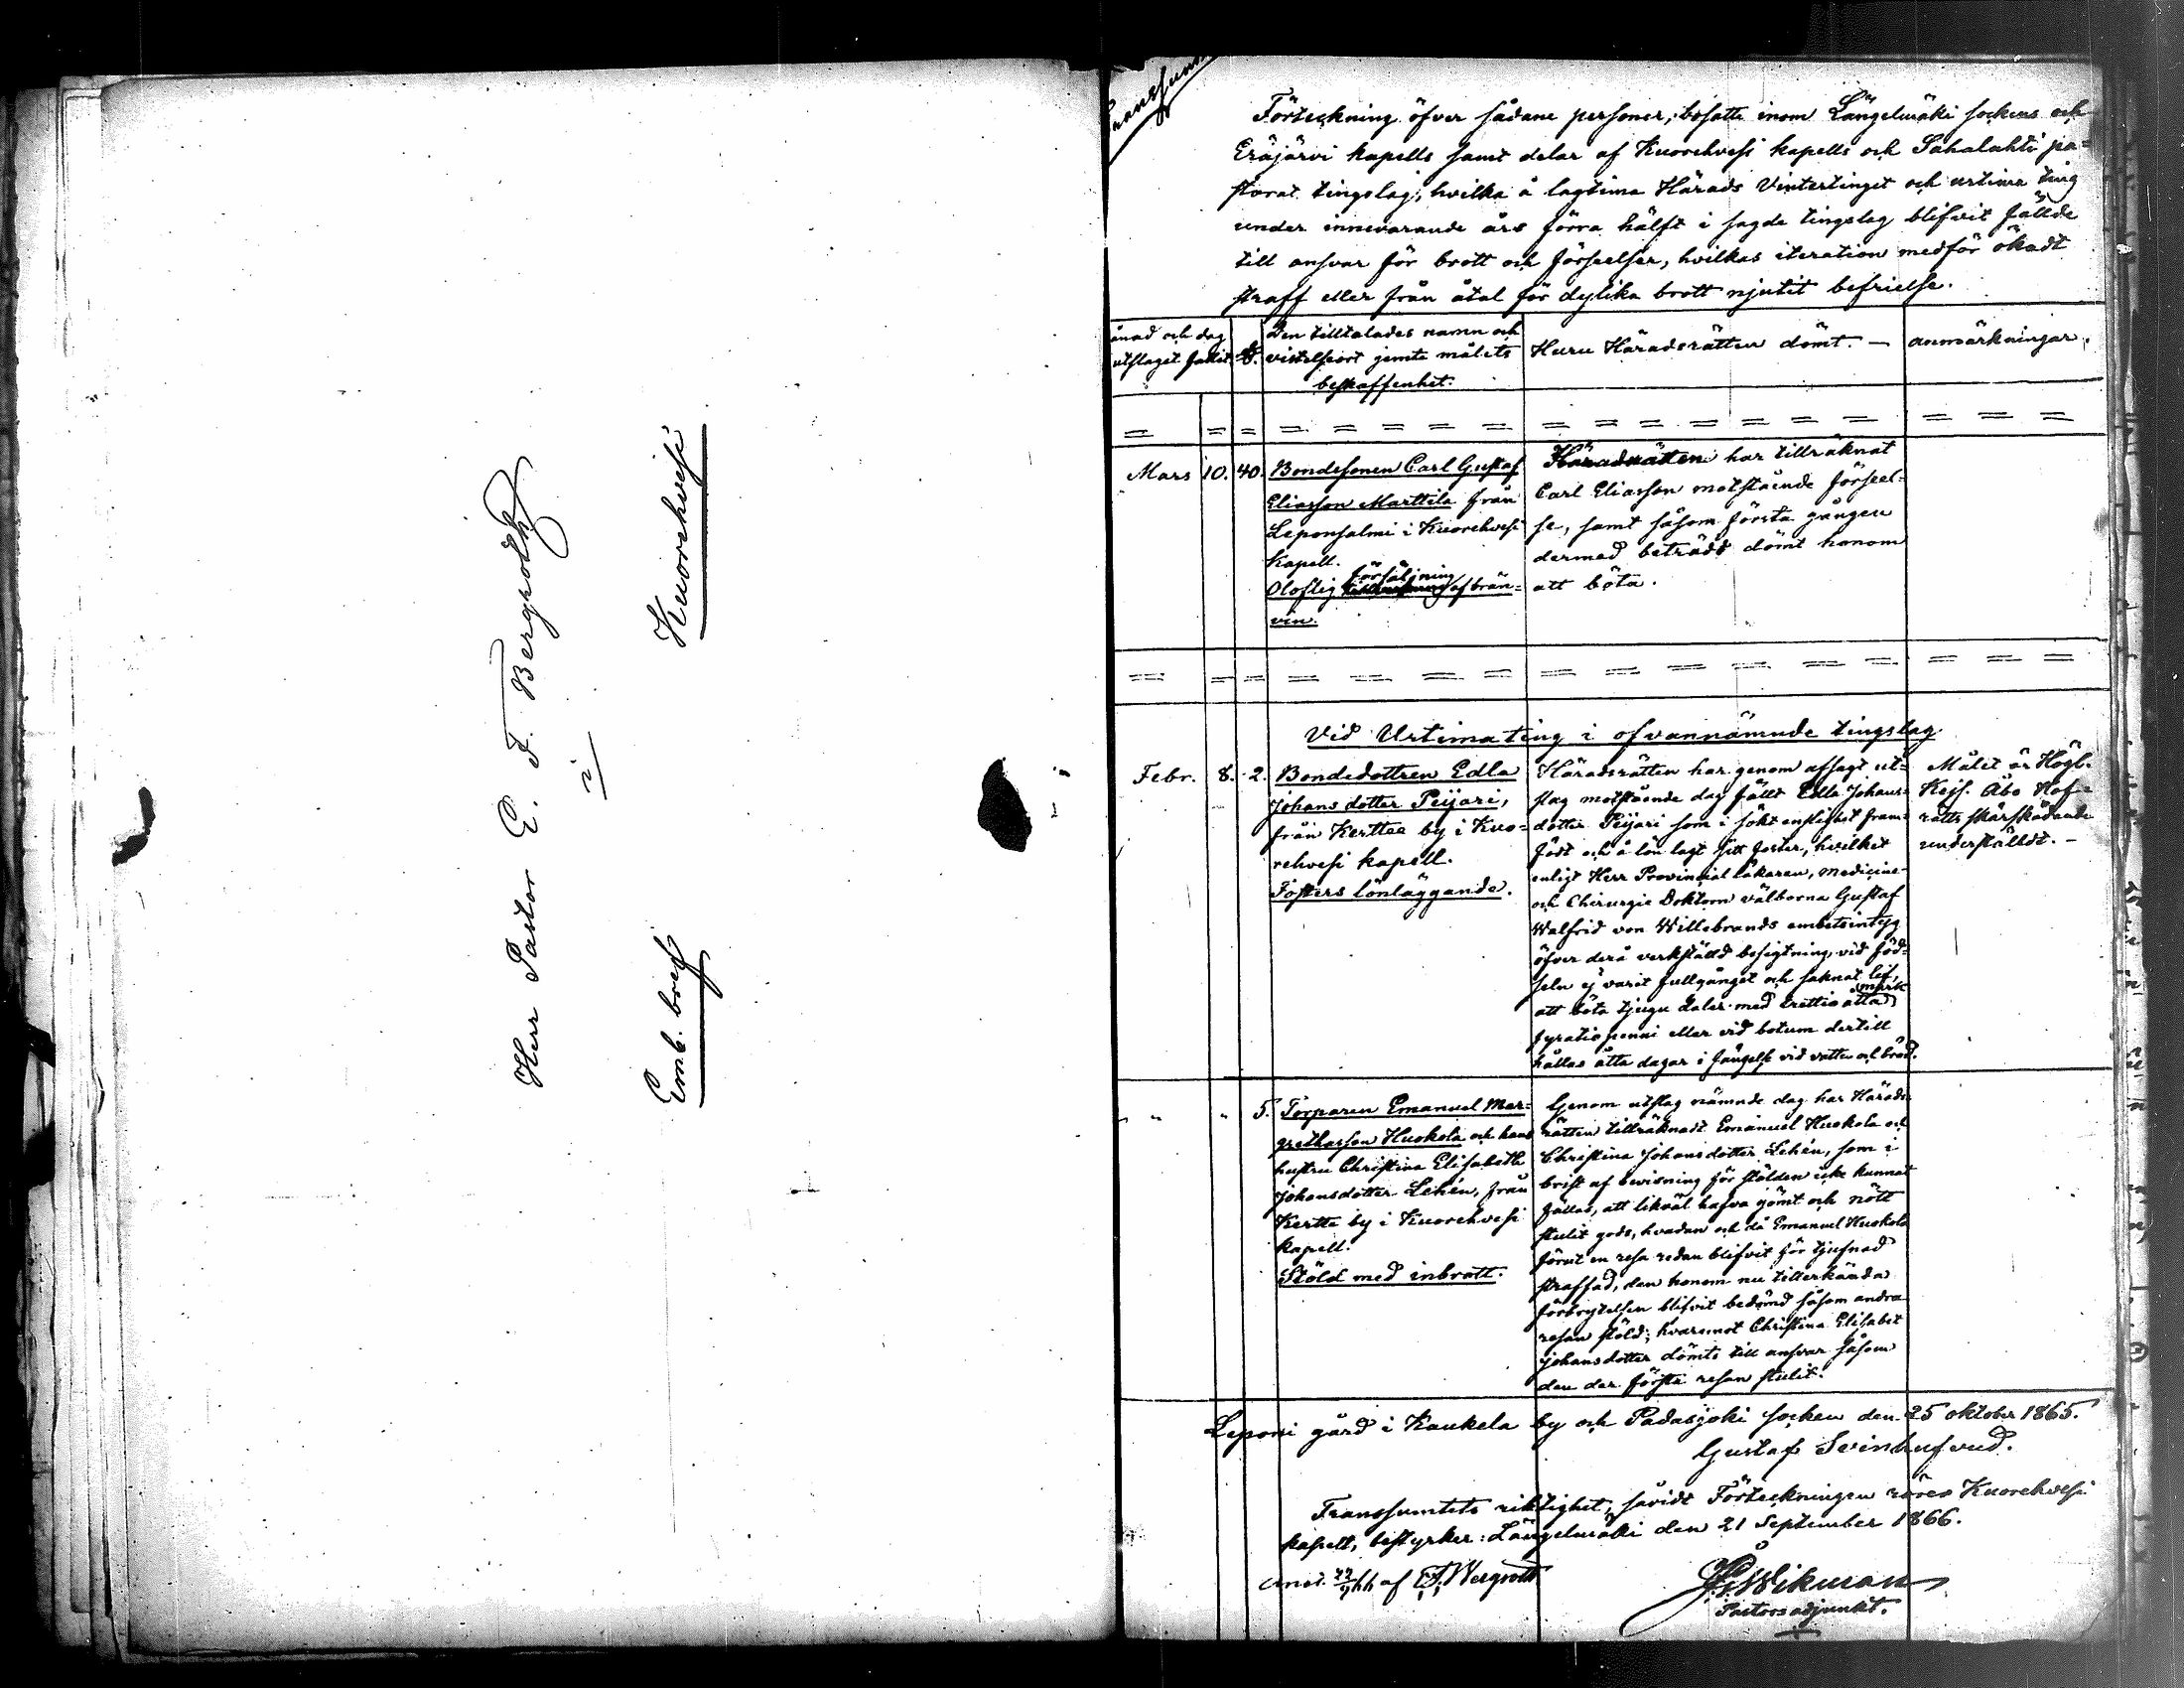 Herr Pastor E. F. Bergroth
i
Kuorehvesi
Emb. bref
Transsumt
Förteckning öfver sådane personer, bosatte inom Längelmäki sockens och
Eräjärvi kapells samt delar af Kuorehvesi kapells och Sahalahti pa=
storat tingslag, hvilka å lagtima Härads Vintertinget och urtima ting
under innevarande års förra hälft i sagde tingslag blifvit fällde
till ansvar för brott och förseelser, hvilkas iteration medför ökadt
straff eller från åtal för dylika brott njutit befrielse.
ånad och dag
utslaget fallit.
Den tilltalades namn och
vistelseort jemte målets
beskaffenhet.
Huru Häradsrätten dömt. —
anmärkningar.
Mars 10. 40. Bondesonen Carl Gustaf
Eliasson Marttila från
Leponsalmi i Kuorehvesi
Kapell.
Oloflig försäljning af brän=
vin.
Häradsrätten har tillräknat
Carl Eliasson motstående förseel=
se, samt såsom första gången
dermed beträdd dömt honom
att böta.
Vid Urtima ting i ofvannämnde tingslag
Febr. 8. 2. Bondedottren Edla
Johans dotter Peijari,
från Kerttee by i Kuo=
rehvesi kapell.
Fosters lönläggande.
Häradsrätten har genom afsagt ut=
slag motstående dag fälld Edla Johans=
dotter Peijari som i sökt enslighet fram=
födt och å lön lagt sitt foster, hvilket
enligt Herr Provincial läkaren, Medicine-
och Chirurgie Doktorn välborna Gustaf
Walfrid von Willebrands embetsintyg
öfver derå verkställd besigtning, vid föd=
seln ej varit fullgånget och saknat lif,
att böta tjugu daler med trettio åtta mark
fyratio penni eller vid botum dertill
hållas åtta dagar i fängelse vid vatten och bröd.
Målet är Högl.
Kejs. Åbo Hof=
rätts skärskådande
underställdt. —
" " 5. Torparen Emanuel Mar=
grethasson Huskola och hans
hustru Christina Elisabeth
Johansdotter Lehén, från
Kertte by i Kuorehvesi
kapell.
Stöld med inbrott.
Genom utslag nämnde dag har Härads=
rätten tillräknadt Emanuel Huskola och
Christina Johansdotter Lehén, som i
brist af bevisning för stölden icke kunnat
fällas, att likväl hafva gömt och nött
stulit gods, hvadan och då Emanuel Huskola
förut en resa redan blifvit för tjufnad
straffad, den honom nu tillerkända
förbrytelsen blifvit bedömd såsom andra
resan stöld; hvaremot Christina Elisabet
Johansdotter dömts till ansvar såsom
den der första resan stulit.
Leponi gård i Kaukela by och Padasjoki socken den 25 oktober 1865.
Gustaf Svinhufvud.
Transsumtets riktighet, såvidt Förteckningen rörer Kuorehvesi
kapell, bestyrker: Längelmäki den 21 September 1866.
af E. F. Bergroth
Wikman
Pastorsadjunkt.